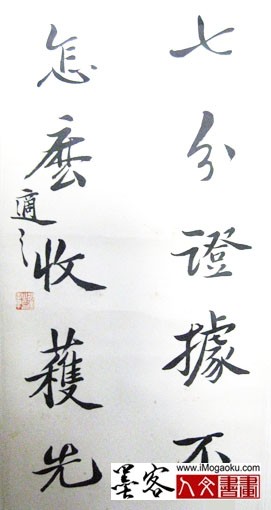 七分證據不
怎麽收穫先
適之
www.iMogaoku.com
墨客
人文書畫